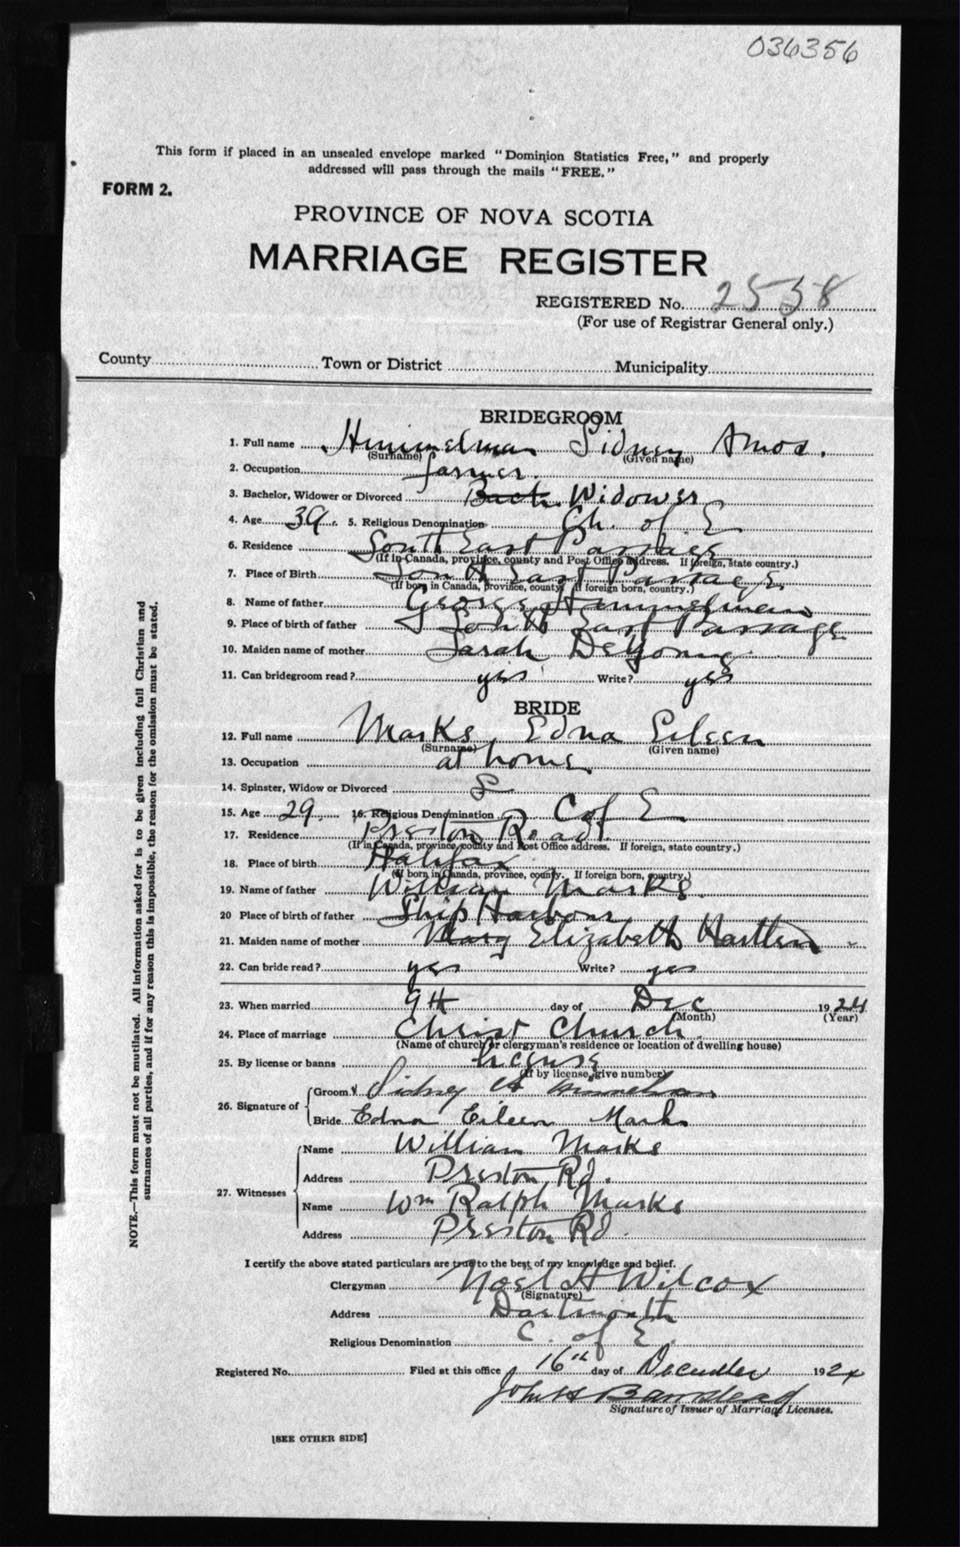 036356
This form if placed in an unsealed envelope marked "Dominion Statistics Free," and properly
addressed will pass through the mails "FREE."
FORM 2.
PROVINCE OF NOVA SCOTIA
MARRIAGE REGISTER
REGISTERED No. 2558
(For use of Registrar General only.)
County Town or District Municipality
BRIDEGROOM
1. Full name Himmelman Sidney Amos.
(Surname) (Given name)
2. Occupation farmer
3. Bachelor, Widower or Divorced Bach. Widower
4. Age 39. 5. Religious Denomination Ch. of E
6. Residence South East Passage
(If in Canada, province, county and Post Office address. If foreign, state country.)
7. Place of Birth South East Passage
(If born in Canada, province, county. If foreign born, country.)
8. Name of father George Himmelman
9. Place of birth of father South East Passage
10. Maiden name of mother Sarah DeYoung
11. Can bridegroom read? yes Write? yes
BRIDE
12. Full name Marks Edna Eileen
(Surname) (Given name)
13. Occupation at home
14. Spinster, Widow or Divorced S
15. Age 29 16. Religious Denomination C of E
17. Residence Preston Road.
(If in Canada, province, county and Post Office address. If foreign, state country.)
18. Place of birth Halifax
(If born in Canada, province, county. If foreign born, country.)
19. Name of father William Marks
20 Place of birth of father Ship Harbour
21. Maiden name of mother Mary Elizabeth Hartlen
22. Can bride read? yes Write? yes
23. When married 9th day of Dec 1924
(Month) (Year)
24. Place of marriage Christ Church
(Name of church or clergyman's residence or location of dwelling house)
25. By license or banns license
(If by license, give number)
26. Signature of Groom Sidney Himmelman
Bride Edna Eileen Marks
27. Witnesses
Name William Marks
Address Preston Rd.
Name Wm Ralph Marks
Address Preston Rd.
I certify the above stated particulars are true to the best of my knowledge and belief.
Clergyman Noel H Wilcox
(Signature)
Address Dartmouth
Religious Denomination C. of E.
Registered No. Filed at this office 16th day of December 1924
John H Barnstead
Signature of Issuer of Marriage Licenses.
[SEE OTHER SIDE]
NOTE.—This form must not be mutilated. All information asked for is to be given including full Christian and
surnames of all parties, and if for any reason this is impossible, the reason for the omission must be stated.